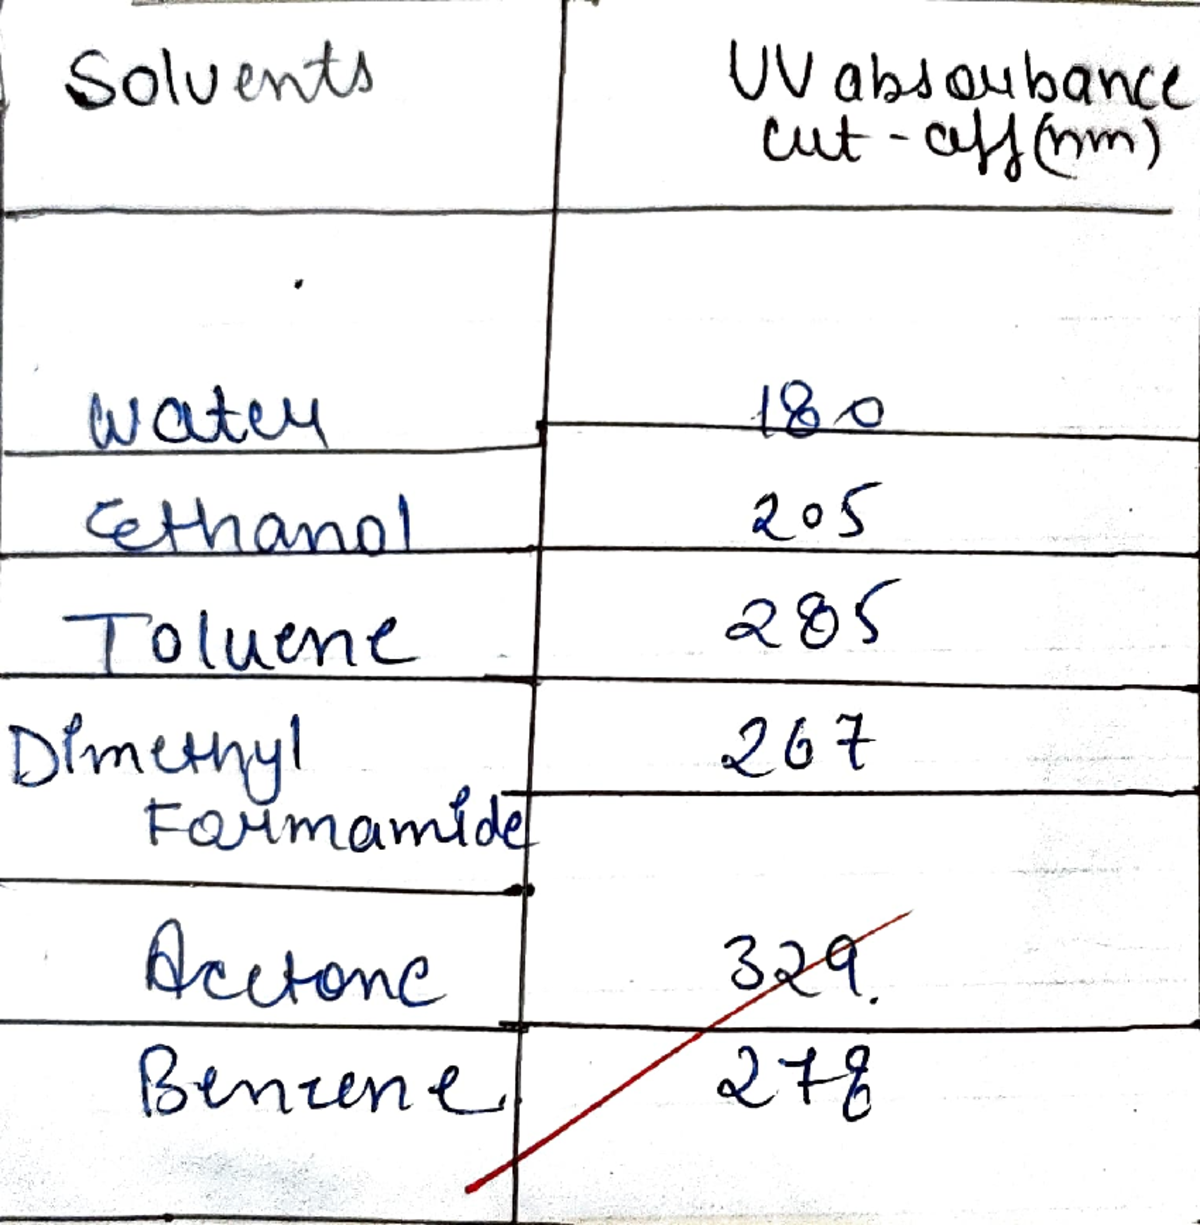 Solvents
UV absorbance
cut-off (nm)
Water
180
Ethanol
205
Toluene
285
Dimethyl
267
Formamide
Acetone
329.
Benzene
278